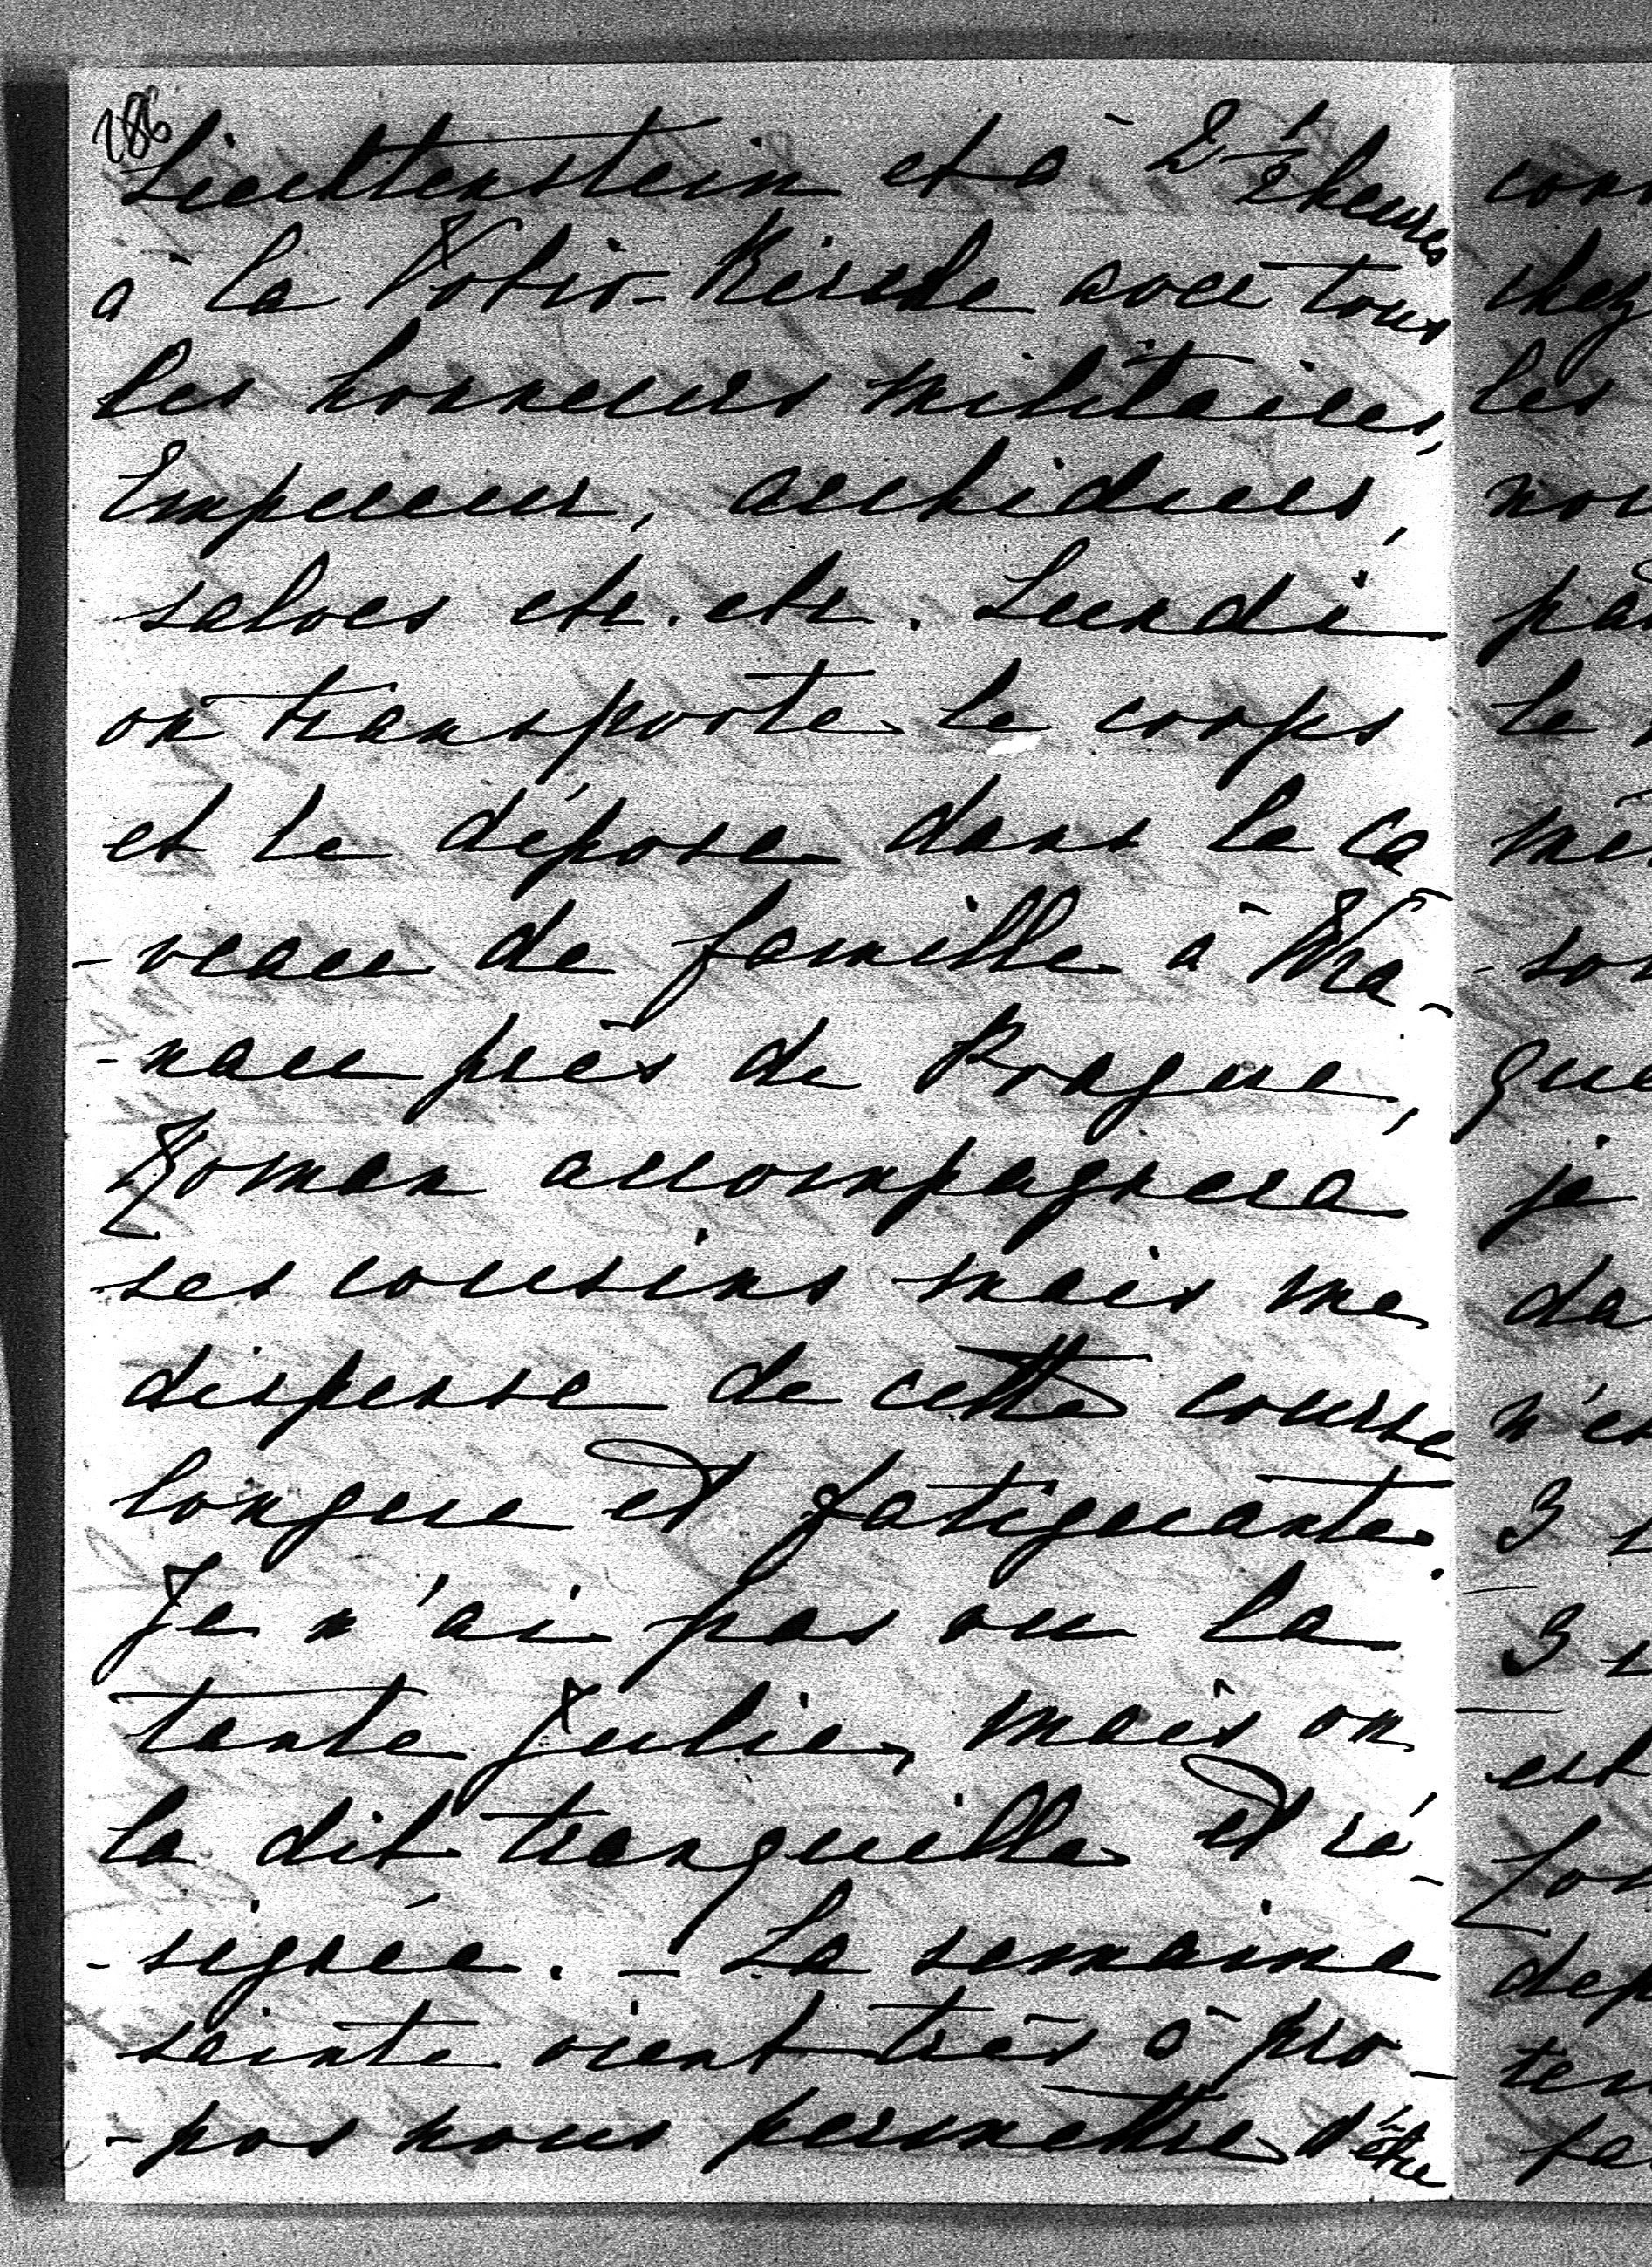 286
Liechtenstein et à 2 1/2 heures
à la Votiv-Kirche avec tous
les honneurs militaires,
Empereur, archiducs,
salves etc. etc. Lundi
on transporte le corps
et le dépose dans le ca
-veau de famille à Wra-
-nau près de Prague,
Roman accompagnera
ses cousins mais me
dispense de cette course
longue et fatiguante.
Je n'ai pas vu la
tante Julie, mais on
la dit tranquille et ré-
-signée. - La semaine
sainte vient très à pro-
-pos nous permettre d'être
chez
les
le
que
je
n'es
3
3
est